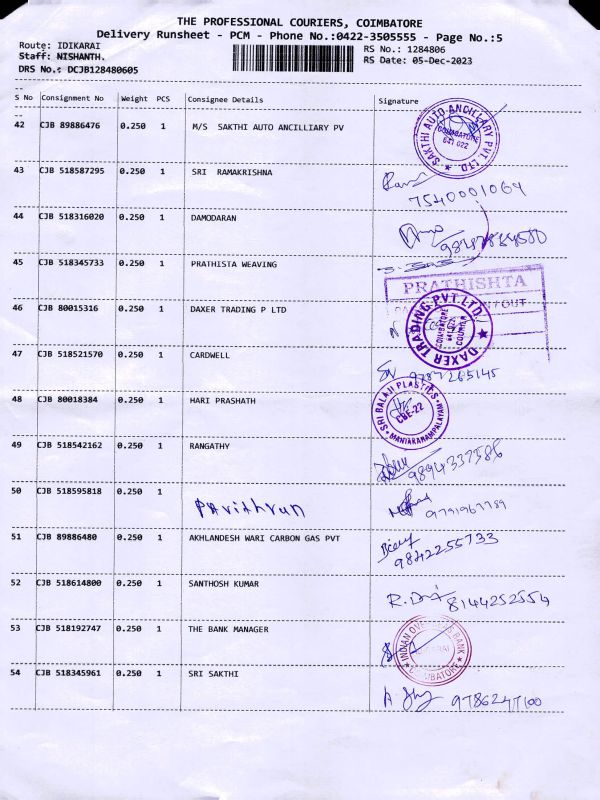 THE PROFESSIONAL COURIERS, COIMBATORE
Delivery Runsheet - PCM - Phone No.:0422-3505555 - Page No.:5
Route: IDIKARAI
RS No.: 1284806
Staff: NISHANTH.
RS Date: 05-Dec-2023
DRS No.: DCJB128480605
S No Consignment No Weight PCS Consignee Details Signature
42 CJB 89886476 0.250 1 M/S SAKTHI AUTO ANCILLIARY PV
SAKTHI AUTO ANCILLARY PVT. LTD.
COIMBATORE
641 022
43 CJB 518587295 0.250 1 SRI RAMAKRISHNA
7540001064
44 CJB 518316020 0.250 1 DAMODARAN
45 CJB 518345733 0.250 1 PRATHISTA WEAVING
PRATHISHTA
46 CJB 80015316 0.250 1 DAXER TRADING P LTD
DAXER TRADING PVT LTD.
47 CJB 518521570 0.250 1 CARDWELL
9787265145
48 CJB 80018384 0.250 1 HARI PRASHATH
SRI BALAJI PLASTICS
CBE-22
MANIAKARAMPALAYAM
49 CJB 518542162 0.250 1 RANGATHY
9894337586
50 CJB 518595818 0.250 1 PAvithran
9791967789
51 CJB 89886480 0.250 1 AKHLANDESH WARI CARBON GAS PVT
9842255733
52 CJB 518614800 0.250 1 SANTHOSH KUMAR
8144252554
53 CJB 518192747 0.250 1 THE BANK MANAGER
INDIAN OVERSEAS BANK
COIMBATORE
54 CJB 518345961 0.250 1 SRI SAKTHI